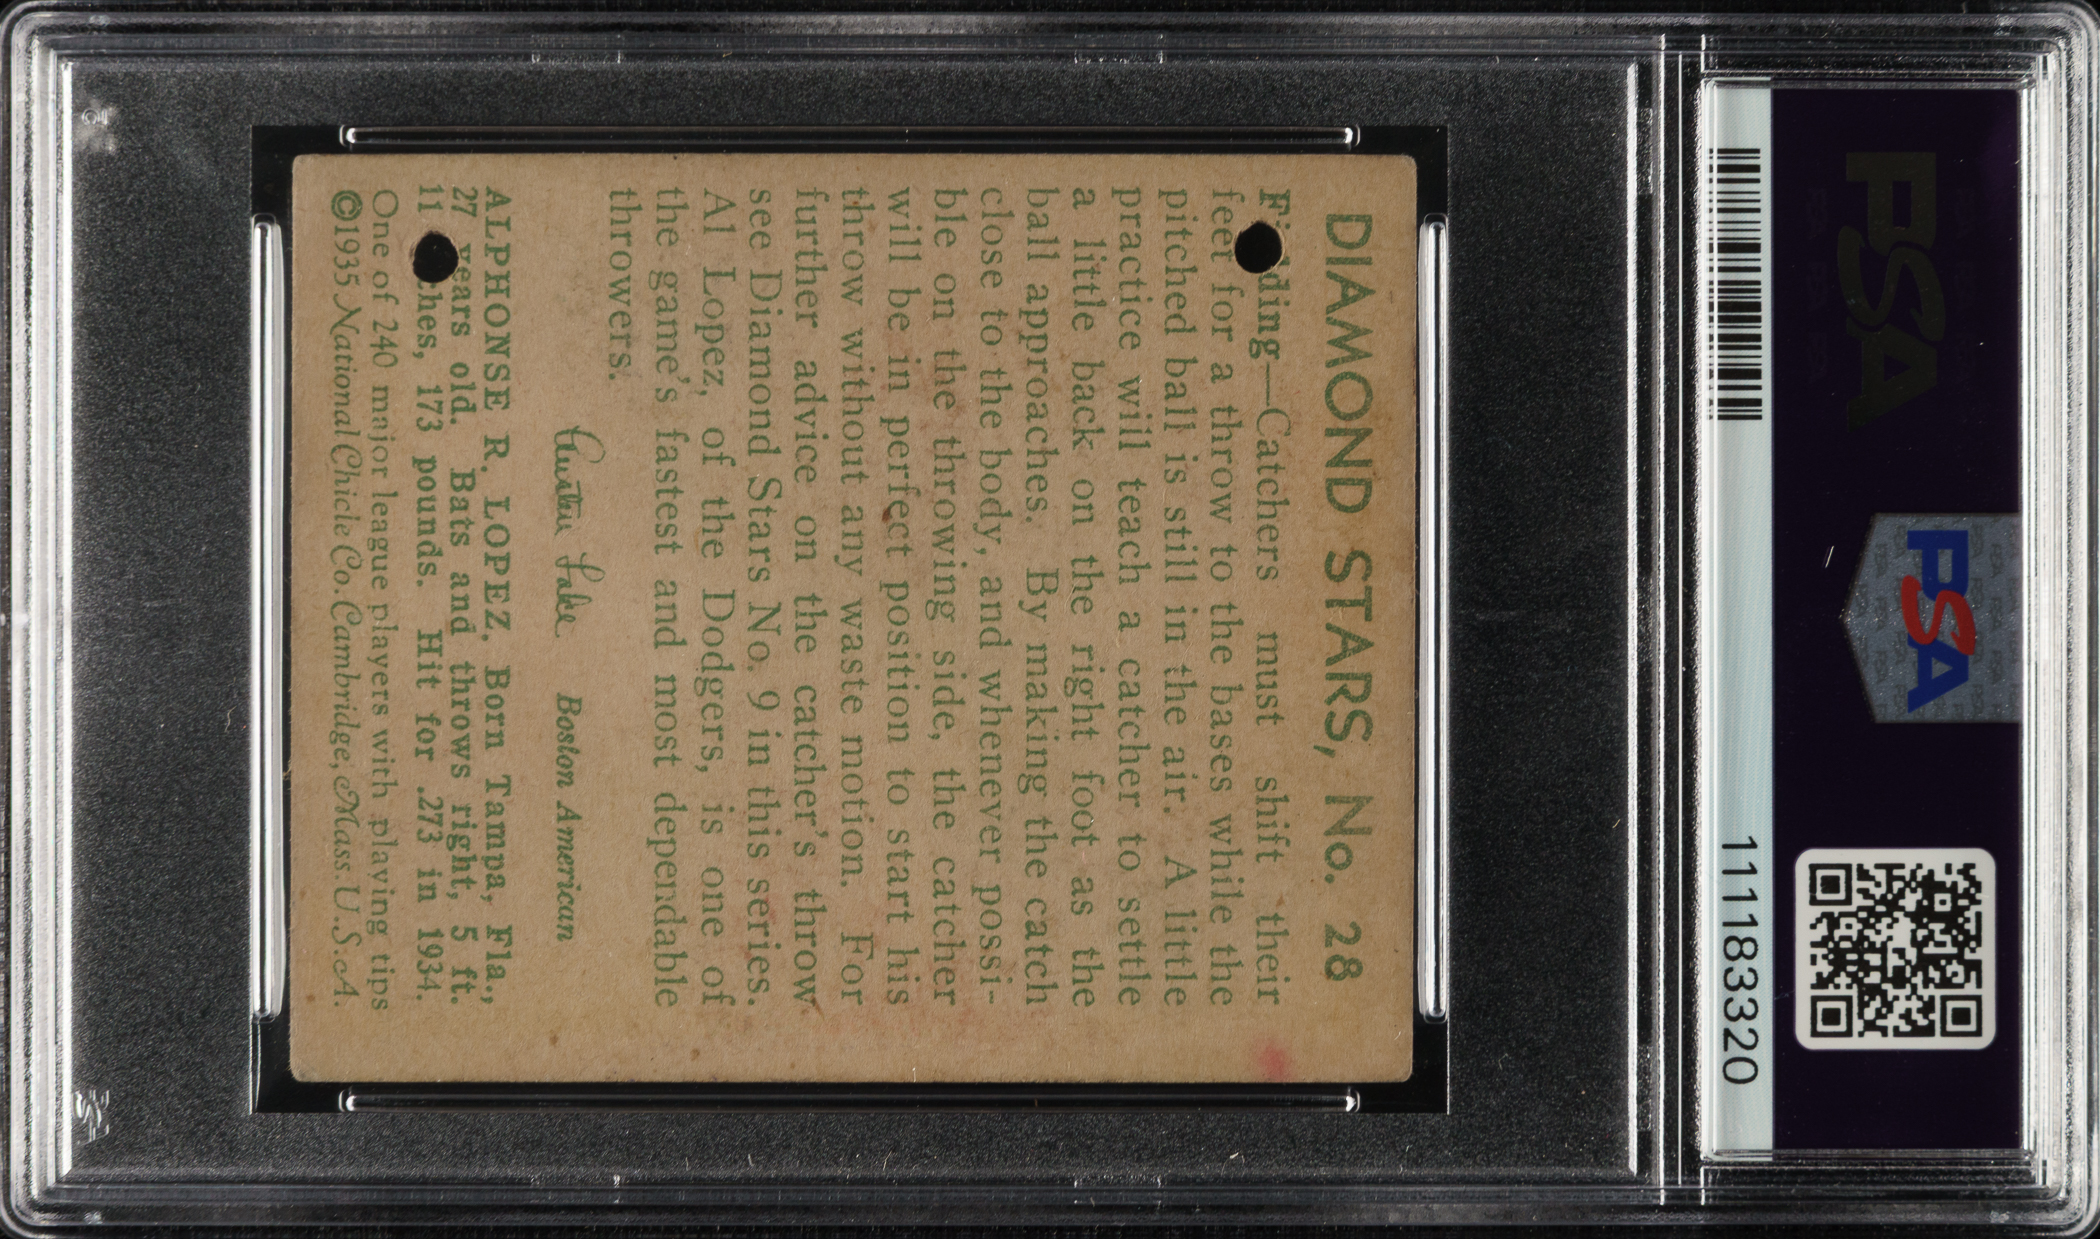 DIAMOND STARS, No. 28
ding—Catchers must shift their
feet for a throw to the bases while the
pitched ball is still in the air. A little
practice will teach a catcher to settle
a little back on the right foot as the
ball approaches. By making the catch
close to the body, and whenever possi-
ble on the throwing side, the catcher
will be in perfect position to start his
throw without any waste motion. For
further advice on the catcher's throw
see Diamond Stars No. 9 in this series.
Al Lopez, of the Dodgers, is one of
the game's fastest and most dependable
throwers.
Austen Lake Boston American
ALPHONSE R. LOPEZ, Born Tampa, Fla.,
27 years old. Bats and throws right, 5 ft.
11 hes, 173 pounds. Hit for .273 in 1934.
One of 240 major league players with playing tips
©1935 National Chicle Co. Cambridge, Mass. U.S.A.
PSA
PSA
111183320